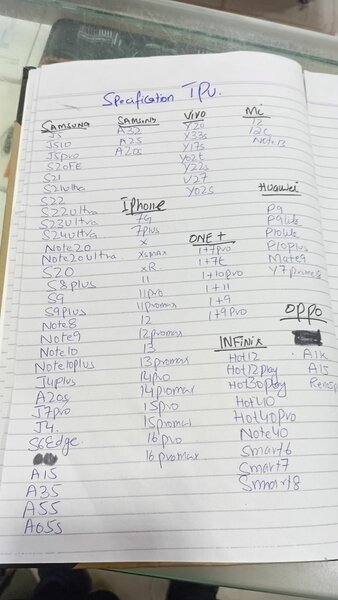 Specification TPU.
SAMSUNG
J5
J510
J5pro
S20FE
S21
S21ultra
S22
S22ultra
S23ultra
S24ultra
Note20
Note20ultra
S20
S8plus
S9
S9plus
Note8
Note9
Note10
Note10plus
J4plus
A20s
J7pro
J4.
S6Edge
A15
A35
A55
A05s
SAMSUNG
A32
A25
A20s
Iphone
7G
7plus
X
Xsmax
XR
11
11pro
11promax
12
12promax
13
13promax
14pro
14promax
15pro
15promax
16pro
16promax
VIVO
Y20
Y33s
Y17s
Y02t
Y22s
V27
Y02s
ONE+
1+7pro
1+7t
1+10pro
1+11
1+9
1+9pro
INFinix
Hot12
Hot12play
Hot30play
Hot40
Hot40pro
Note40
Smart6
Smart7
Smart8
Mi
12
12C
Note13
Huawei
P9
P9lite
P10lite
P10plus
Mate9
Y7prime18
OPPO
A1K
A15